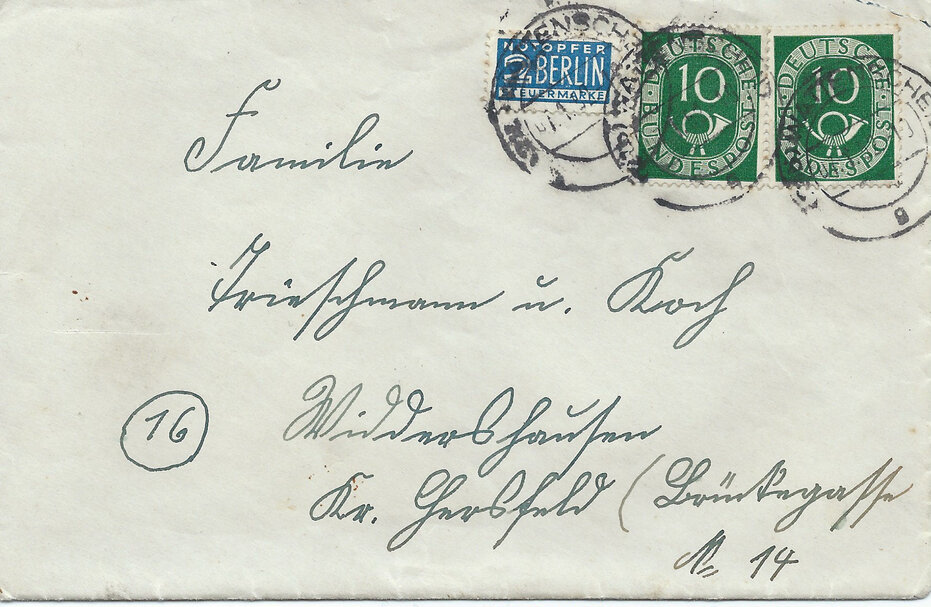 NOTOPFER
2 BERLIN
STEUERMARKE
DEUTSCHE
10
BUNDESPOST
DEUTSCHE
10
BUNDESPOST
Familie
Trieschmann u. Koch
16
Widdershausen
Kr. Hersfeld (Brückegasse
No 14